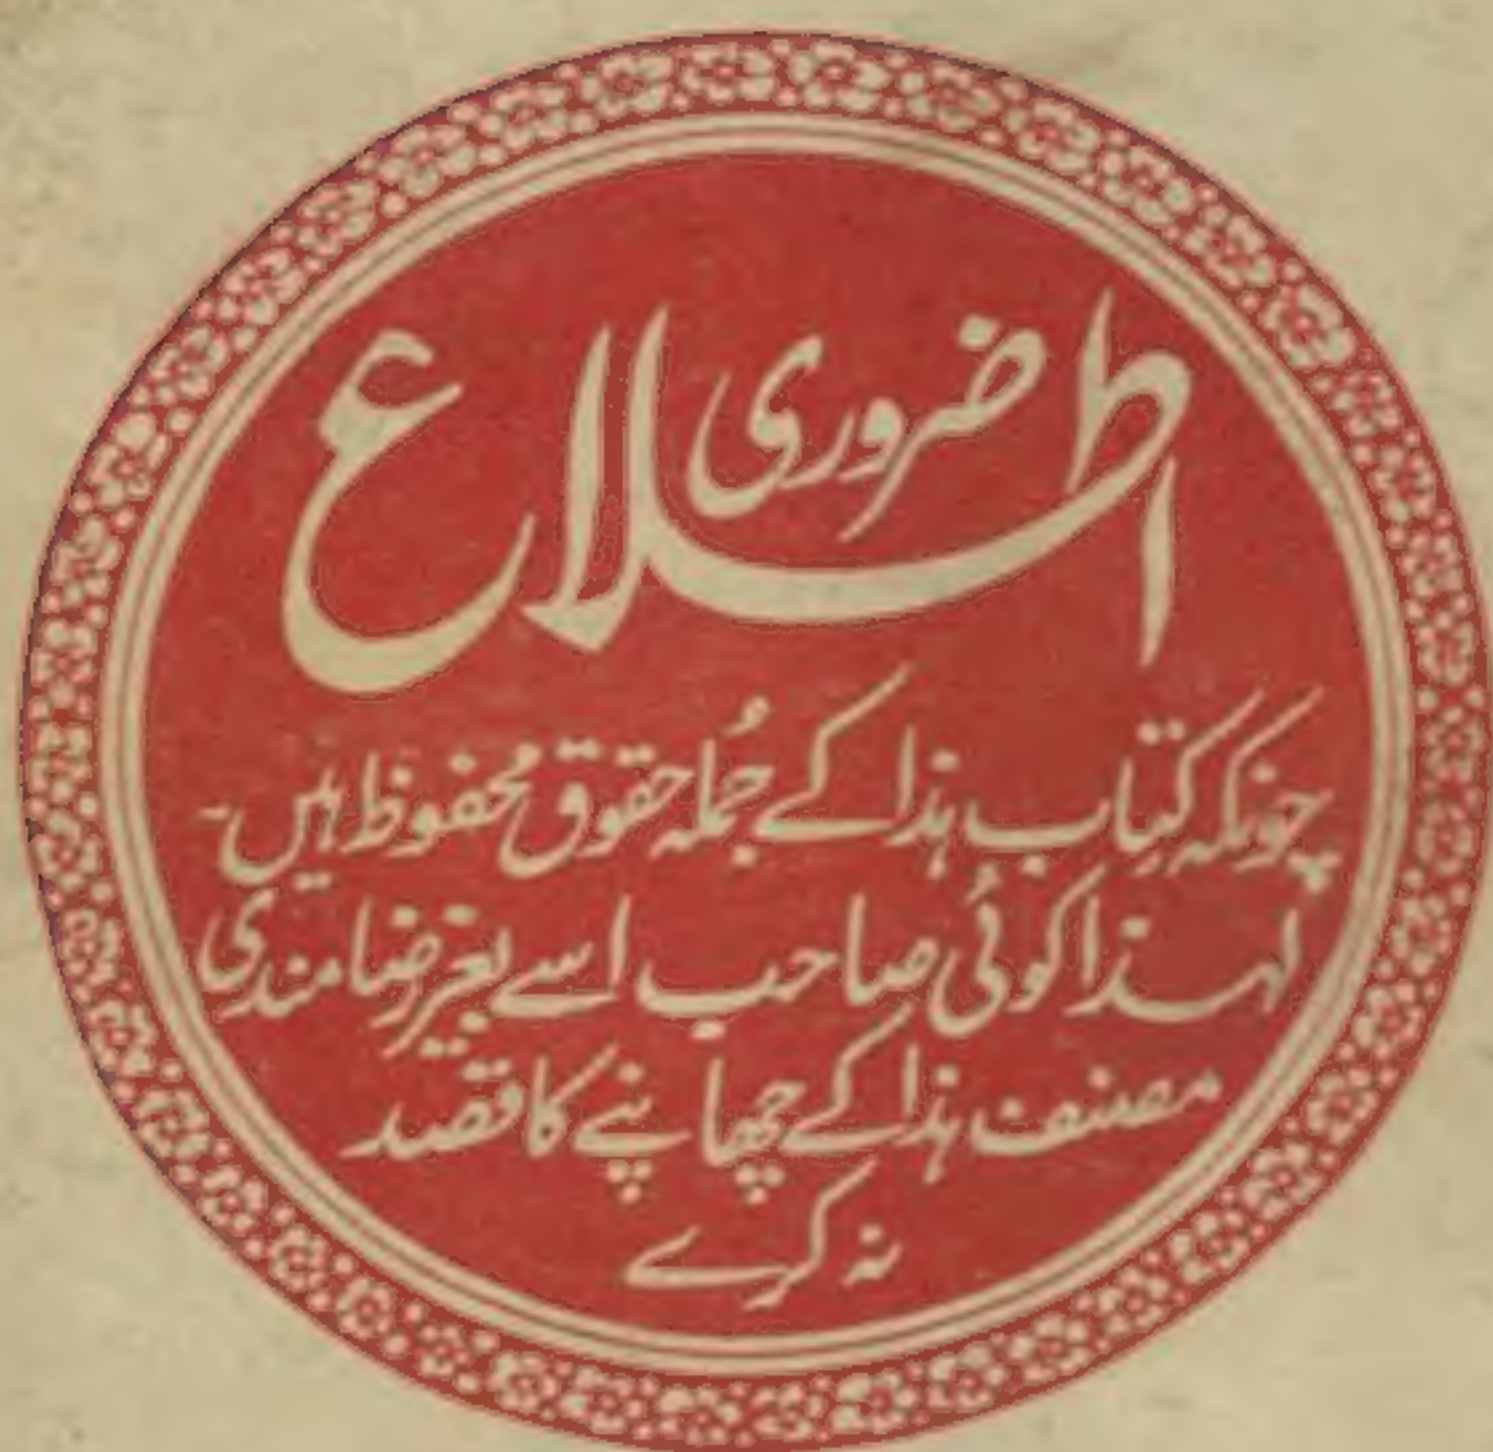 اطلاع ضروری
چونکہ کتاب ہذا کے جُملہ حقوق محفوظ ہیں۔
لہذا کوئی صاحب اسے بغیر رضامندی
مصنف ہذا کے چھاپنے کا قصد
نہ کرے